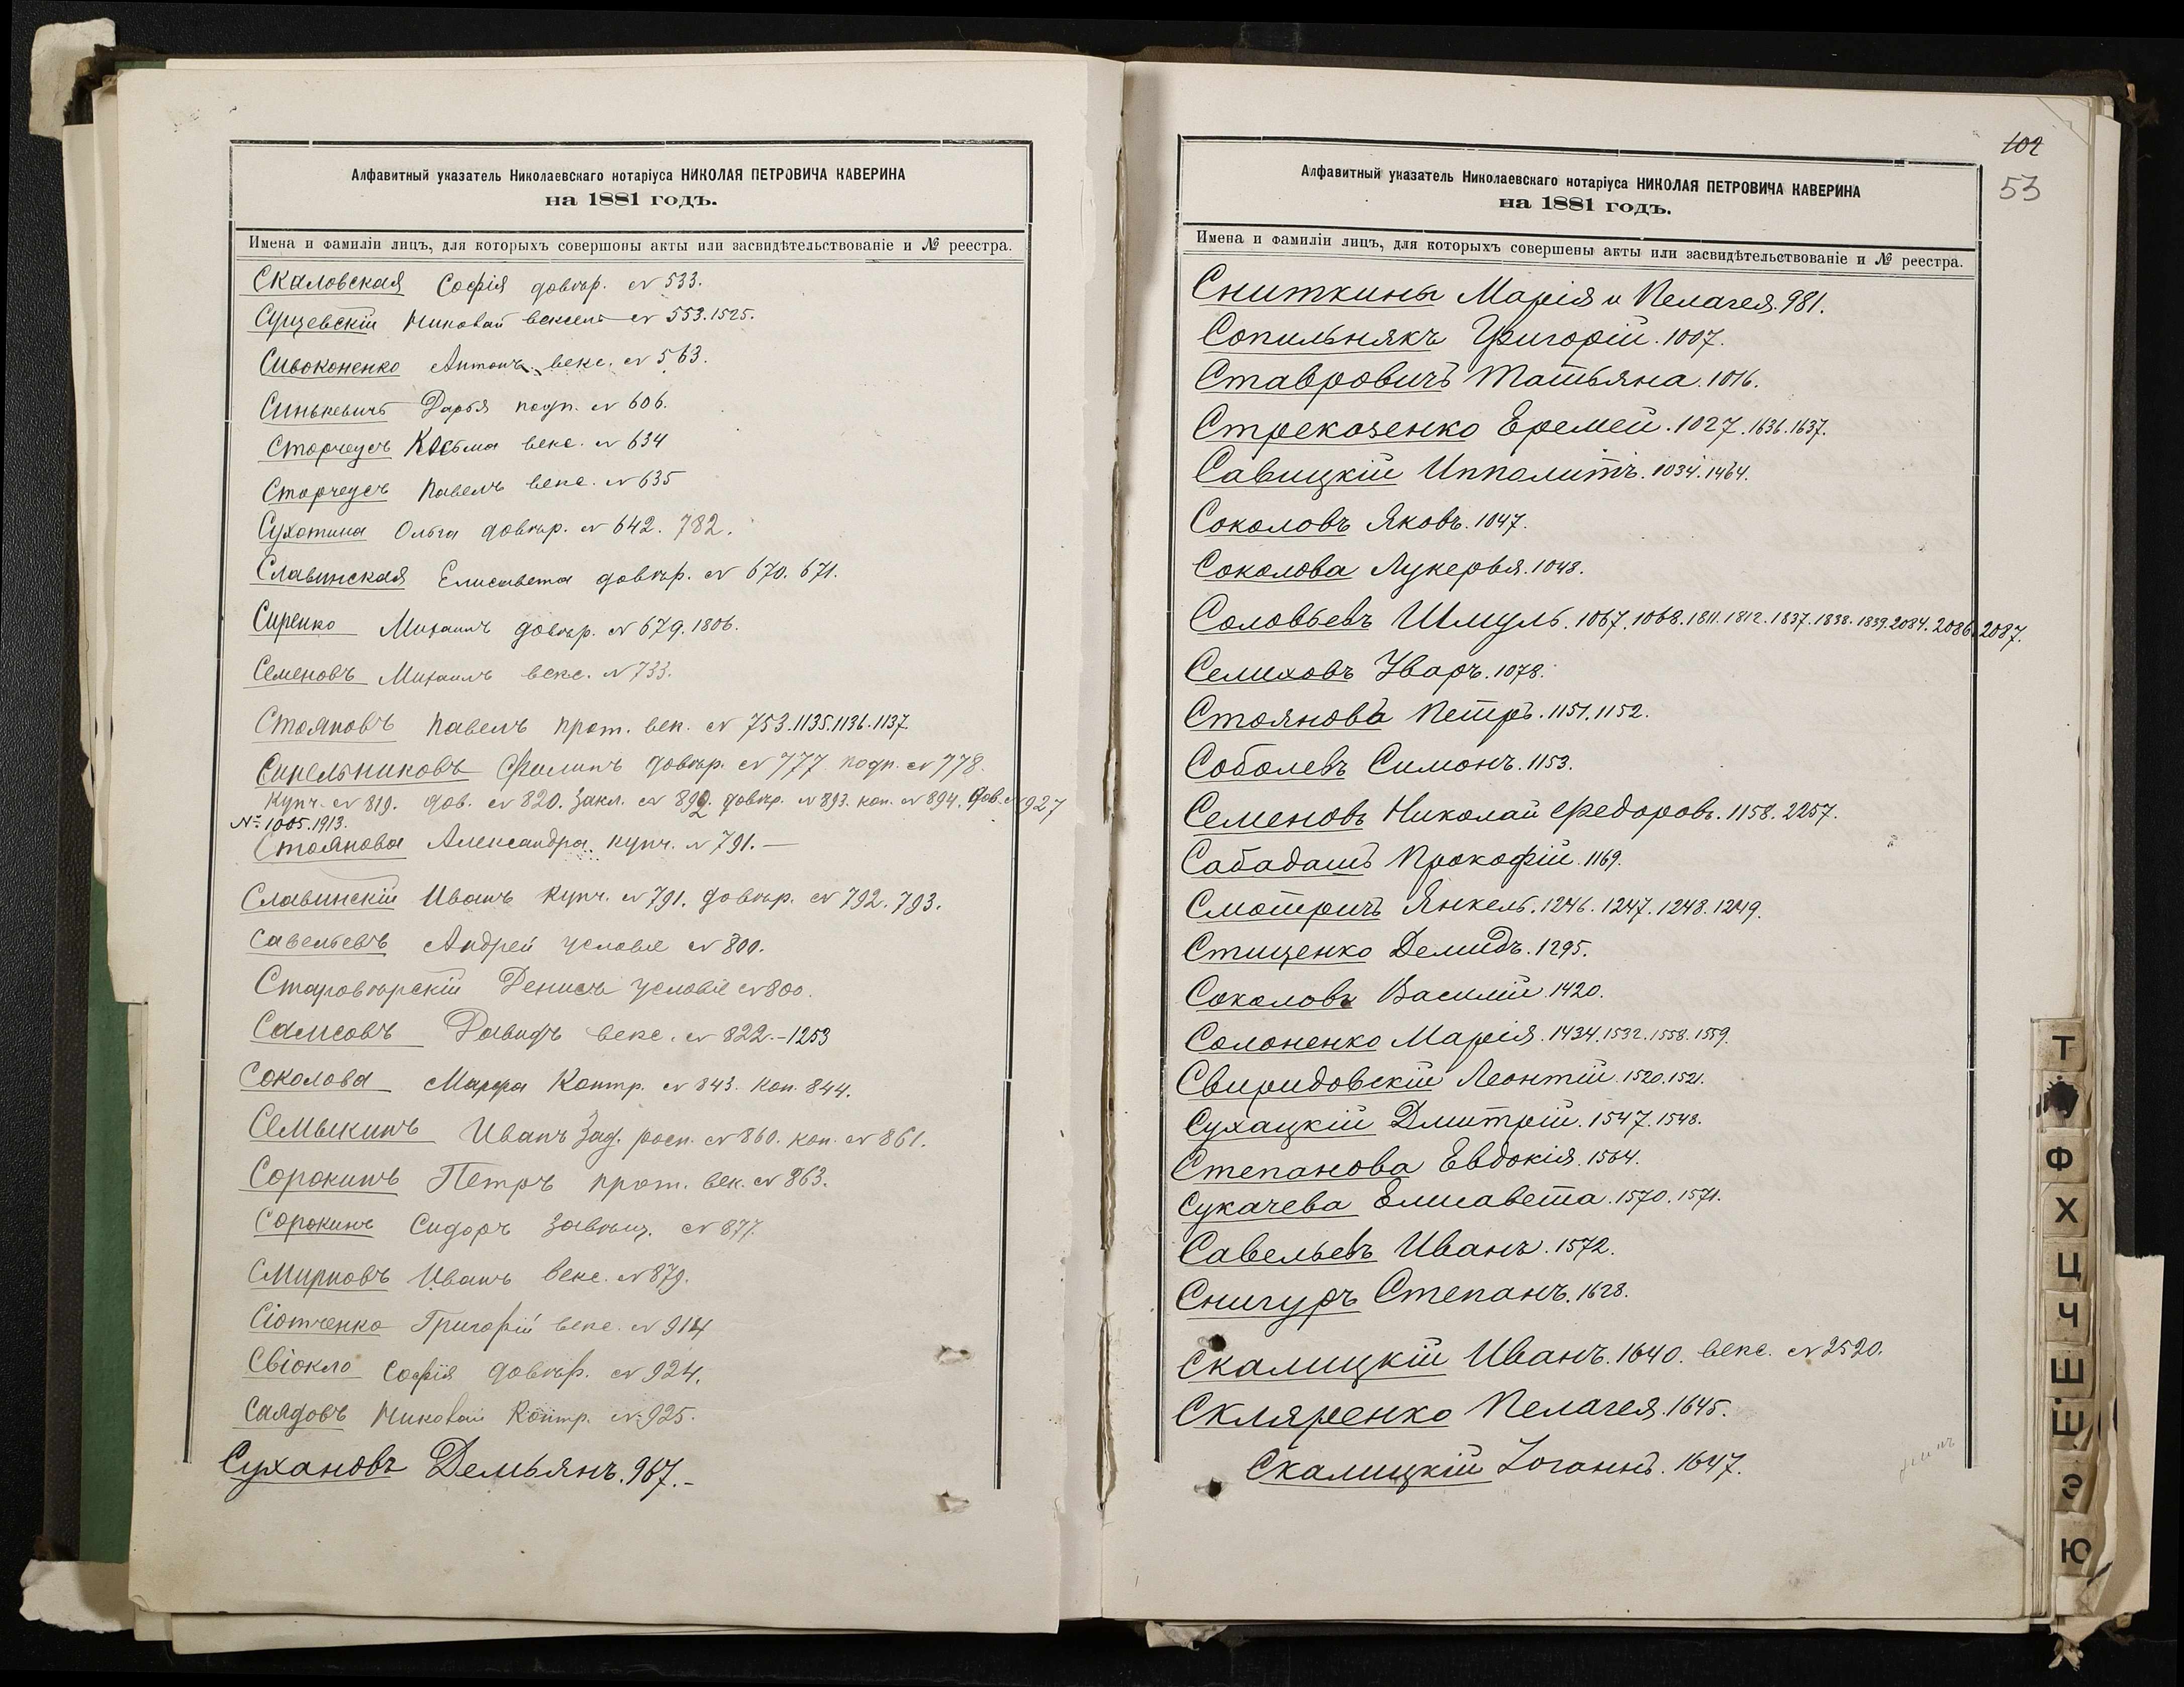 Алфавитный указатель Николаевскаго нотаріуса НИКОЛАЯ ПЕТРОВИЧА КАВЕРИНА
на 1881 годъ.
Имена и фамиліи лицъ, для которыхъ совершоны акты или засвидѣтельствованіе и № реестра.
Скаловская Софія довѣр. № 533.
Сущевскій Николай вексель № 553.1525.
Сивоконенко Антонъ векс. № 563.
Синькевичъ Дарья подп. № 606.
Сторчеусъ Косьма векс. № 634
Сторчеусъ Павелъ векс. № 635
Сухотина Ольга довѣр. № 642. 782.
Славинская Елисавета довѣр. № 670. 671.
Сиренко Михаилъ довѣр. № 679. 1806.
Семеновъ Михаилъ векс. № 733.
Стояновъ Павелъ прот. век. № 753.1135.1136.1137.
Синельниковъ Филипъ довѣр. № 777 подп. № 778.
Купч. № 819. дов. № 820. Закл. № 892. довѣр. № 893. коп. № 894. дов. № 927
№ 1005.1913.
Стоянова Александра купч. № 791.—
Славинскій Иванъ купч. № 791. довѣр. № 792. 793.
Савельевъ Андрей условіе № 800.
Старовѣрскій Денисъ условіе № 800.
Самсовъ Давидъ векс. № 822.-1253
Соколова Марфа Контр. № 843. коп. 844.
Семыкинъ Иванъ Зад. росп. № 860. коп. № 861.
Сорокинъ Петръ прот. век. № 863.
Сорокинъ Сидоръ завѣщ. № 877.
Смирновъ Иванъ векс. № 879.
Сіотченко Григорій векс. № 914
Свіокло Софія довѣр. № 924.
Саядовъ Николай Контр. № 925.
Сухановъ Демьянъ. 967.-
102
53
Алфавитный указатель Николаевскаго нотаріуса НИКОЛАЯ ПЕТРОВИЧА КАВЕРИНА
на 1881 годъ.
Имена и фамиліи лицъ, для которыхъ совершены акты или засвидѣтельствованіе и № реестра.
Сниткины Марія и Пелагея. 981.
Сопильнякъ Григорій. 1007.
Ставровичъ Татьяна. 1016.
Стрекозенко Еремей. 1027. 1636. 1637.
Савицкій Ипполитъ. 1034. 1464.
Соколовъ Яковъ. 1047.
Соколова Лукерья. 1048.
Соловьевъ Шмуль. 1067. 1068. 1811. 1812. 1837. 1838. 1839. 2084. 2086. 2087.
Семиховъ Уваръ. 1078.
Стоянова Петръ. 1151. 1152.
Соболевъ Симонъ. 1153.
Семеновъ Николай Федоровъ. 1158. 2257.
Сабадашъ Прокофій. 1169.
Смотричъ Янкель. 1246. 1247. 1248. 1249.
Стищенко Демидъ. 1295.
Соколовъ Василій. 1420.
Солоненко Марія. 1434. 1532. 1558. 1559.
Свиридовскій Леонтій. 1520. 1521.
Сухацкій Дмитрій. 1547. 1548.
Степанова Евдокія. 1564.
Сукачева Елисавета. 1570. 1571.
Савельевъ Иванъ. 1572.
Снигуръ Степанъ. 1628.
Скалицкій Иванъ. 1640. векс. № 2520.
Скляренко Пелагея. 1645.
Скалицкій Іоганнъ. 1647.
Т
Ф
Х
Ц
Ч
Ш
Щ
Э
Ю